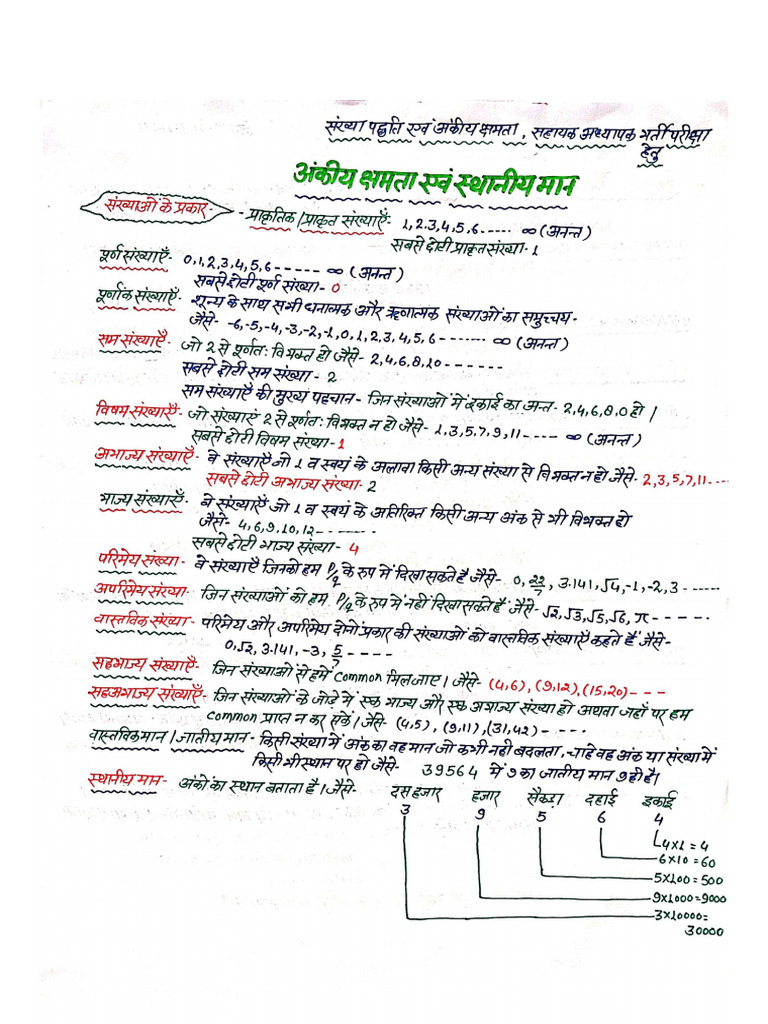 संख्या पद्धति एवं अंकीय क्षमता, सहायक अध्यापक भर्ती परीक्षा
हेतु
अंकीय क्षमता एवं स्थानीय मान
संख्याओं के प्रकार- - प्राकृतिक/प्राकृत संख्याएँ- 1,2,3,4,5,6----- ∞ (अनन्त)
सबसे छोटी प्राकृत संख्या- 1
पूर्ण संख्याएँ- 0,1,2,3,4,5,6----- ∞ (अनन्त)
सबसे छोटी पूर्ण संख्या- 0
पूर्णांक संख्याएँ- शून्य के साथ सभी धनात्मक और ऋणात्मक संख्याओं का समुच्चय-
जैसे- -6,-5,-4,-3,-2,-1,0,1,2,3,4,5,6------- ∞ (अनन्त)
सम संख्याएँ- जो 2 से पूर्णतः विभक्त हो जैसे- 2,4,6,8,10 ------
सबसे छोटी सम संख्या - 2
सम संख्याएँ की मुख्य पहचान - जिन संख्याओं में इकाई का अन्त- 2,4,6,8,0 हो।
विषम संख्याएँ- जो संख्याएं 2 से पूर्णतः विभक्त न हो जैसे- 1,3,5,7,9,11---- ∞ (अनन्त)
सबसे छोटी विषम संख्या- 1
अभाज्य संख्याएँ- वे संख्याएँ जो 1 व स्वयं के अलावा किसी अन्य संख्या से विभक्त न हो जैसे- 2,3,5,7,11----
सबसे छोटी अभाज्य संख्या- 2
भाज्य संख्याएँ- वे संख्याएँ जो 1 व स्वयं के अतिरिक्त किसी अन्य अंक से भी विभक्त हो
जैसे- 4,6,9,10,12-------
सबसे छोटी भाज्य संख्या- 4
परिमेय संख्या- वे संख्याएँ जिनको हम P/q के रूप में दिखा सकते है जैसे- 0, 22/7, 3.141, √4, -1, -2, 3 ------
अपरिमेय संख्या- जिन संख्याओं को हम P/q के रूप में नहीं दिखा सकते हैं जैसे- √2, √3, √5, √6, π -----
वास्तविक संख्या- परिमेय और अपरिमेय दोनों प्रकार की संख्याओं को वास्तविक संख्याएँ कहते हैं जैसे-
0, √2, 3.141, -3, 5/7 ----
सहभाज्य संख्याएँ- जिन संख्याओं से हमें Common मिल जाए। जैसे- (4,6), (9,12), (15,20)---
सहअभाज्य संख्याएँ- जिन संख्याओं के जोड़े में एक भाज्य और एक अभाज्य संख्या हो अथवा जहाँ पर हम
Common प्राप्त न कर सकें। जैसे- (4,5), (9,11), (31,42)----
वास्तविक मान/जातीय मान- किसी संख्या में अंक का वह मान जो कभी नहीं बदलता, चाहे वह अंक या संख्या में
किसी भी स्थान पर हो जैसे- 39564 में 9 का जातीय मान 9 ही है।
स्थानीय मान- अंकों का स्थान बताता है। जैसे- दस हजार हजार सैकड़ा दहाई इकाई
3 9 5 6 4
4x1=4
6x10=60
5x100=500
9x1000=9000
3x10000=
30000